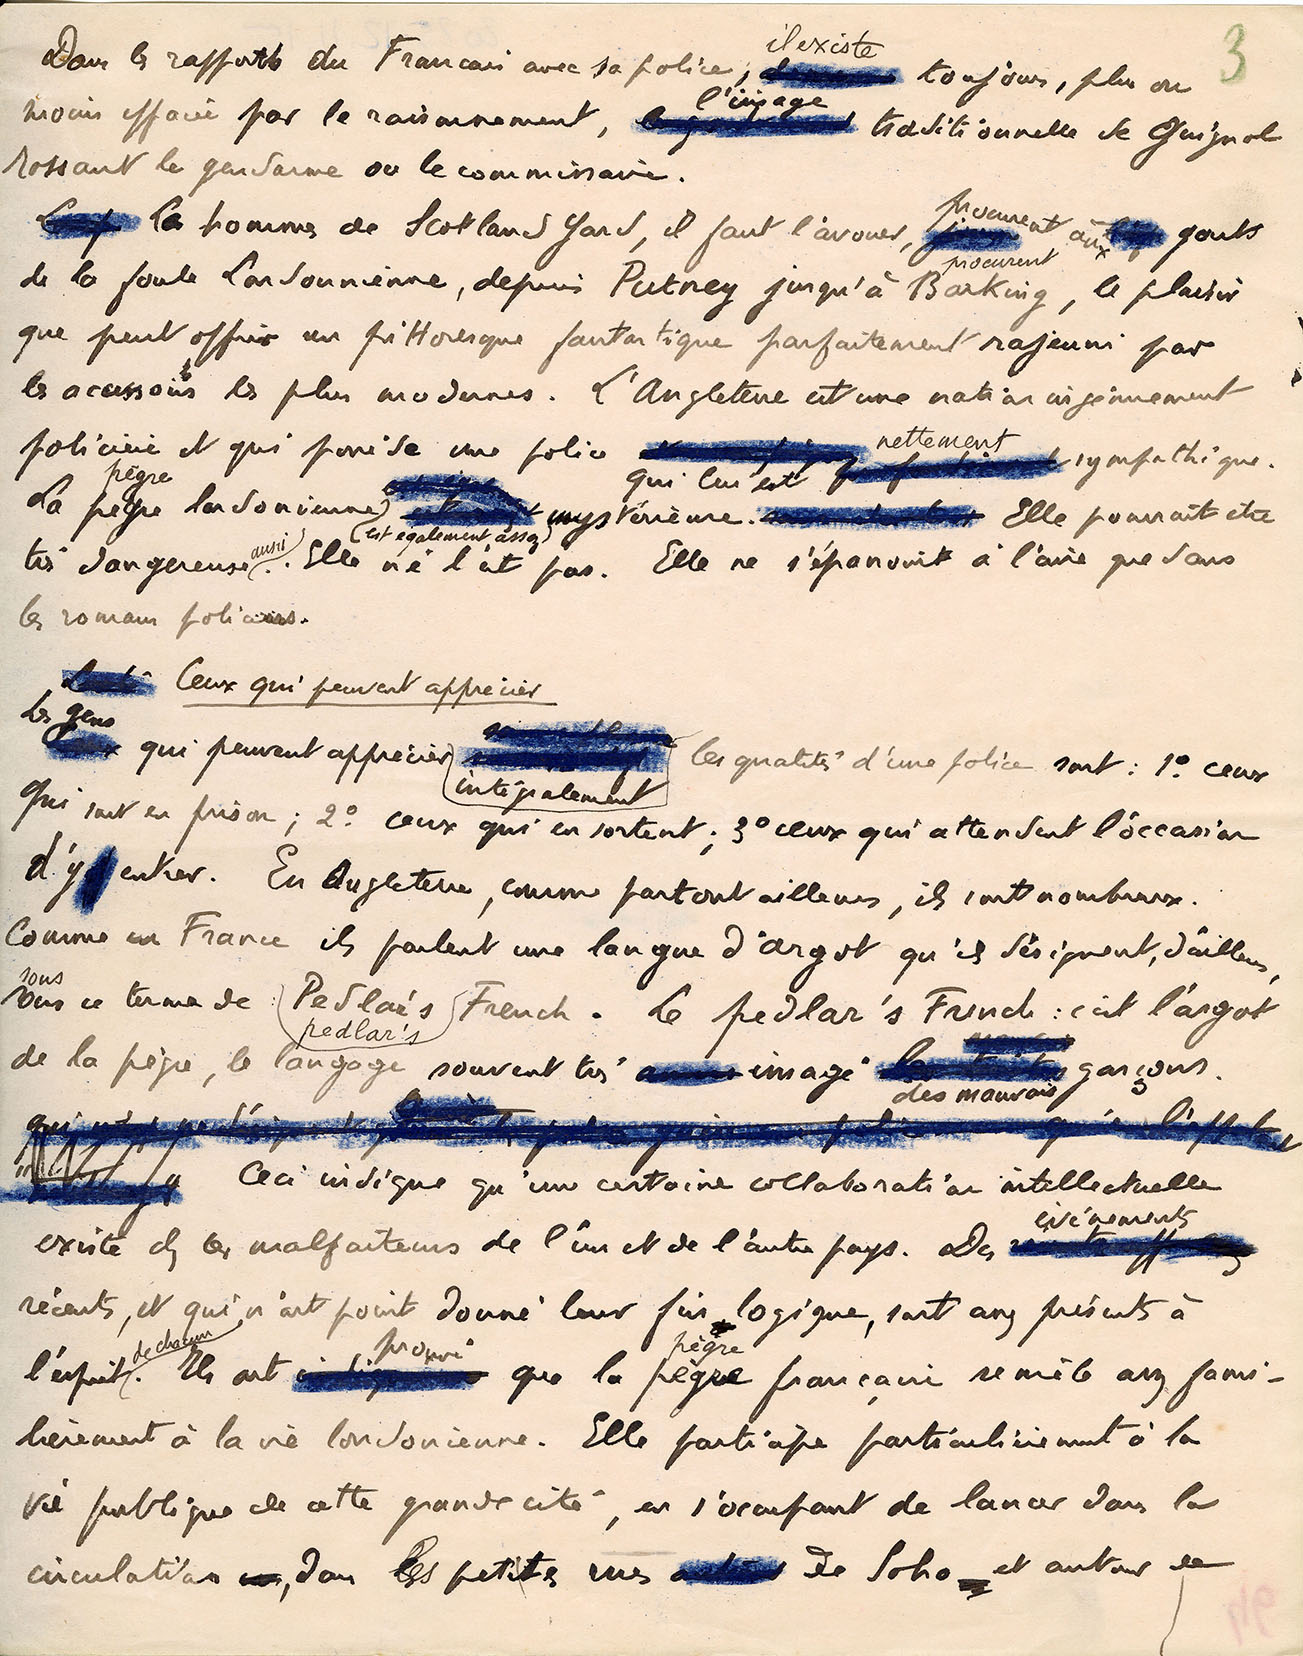 3
Dans les rapports du Français avec sa police, il existe toujours, plus ou
moins effacée par le raisonnement, l'image traditionnelle de Guignol
rossant le gendarme ou le commissaire.
Les hommes de Scotland Yard, il faut l'avouer, procurent aux gouts
procurent
de la foule Londonnienne, depuis Putney jusqu'à Barking, le plaisir
que peut offrir un pittoresque fantastique parfaitement rajeuni par
les acessoires les plus modernes. L'Angleterre est une nation ingénuement
policière et qui possède une police qui leur est nettement sympathique.
pègre
La pègre londonienne (est également assez) mystérieuse. Elle pourrait être
très dangereuse aussi. Elle ne l'est pas. Elle ne s'épanouit à l'aise que dans
les romans policiers.
Ceux qui peuvent apprécier
Les gens
qui peuvent apprécier intégralement les qualités d'une police sont : 1º ceux
qui sont en prison ; 2º ceux qui en sortent ; 3º ceux qui attendent l'occasion
d'y entrer. En Angleterre, comme partout ailleurs, ils sont nombreux.
Comme en France ils parlent une langue d'argot qu'ils désignent, d'ailleurs,
sous
sous ce terme de (Pedlar's) French. Le pedlar's French : c'est l'argot
pedlar's
de la pègre, le langage souvent très imagé des mauvais garçons.
Ceci indique qu'une certaine collaboration intellectuelle
existe chez les malfaiteurs de l'un et de l'autre pays. Des événements
récents, et qui n'ont point donné leur fin logique, sont assez présents à
l'esprit de chacun. Ils ont prouvé que la pègre française se mêle assez fami-
pègre
lièrement à la vie londonienne. Elle participe particulièrement à la
vie publique de cette grande cité, en s'occupant de lancer dans la
circulation, dans les petites rues de Soho et autour de